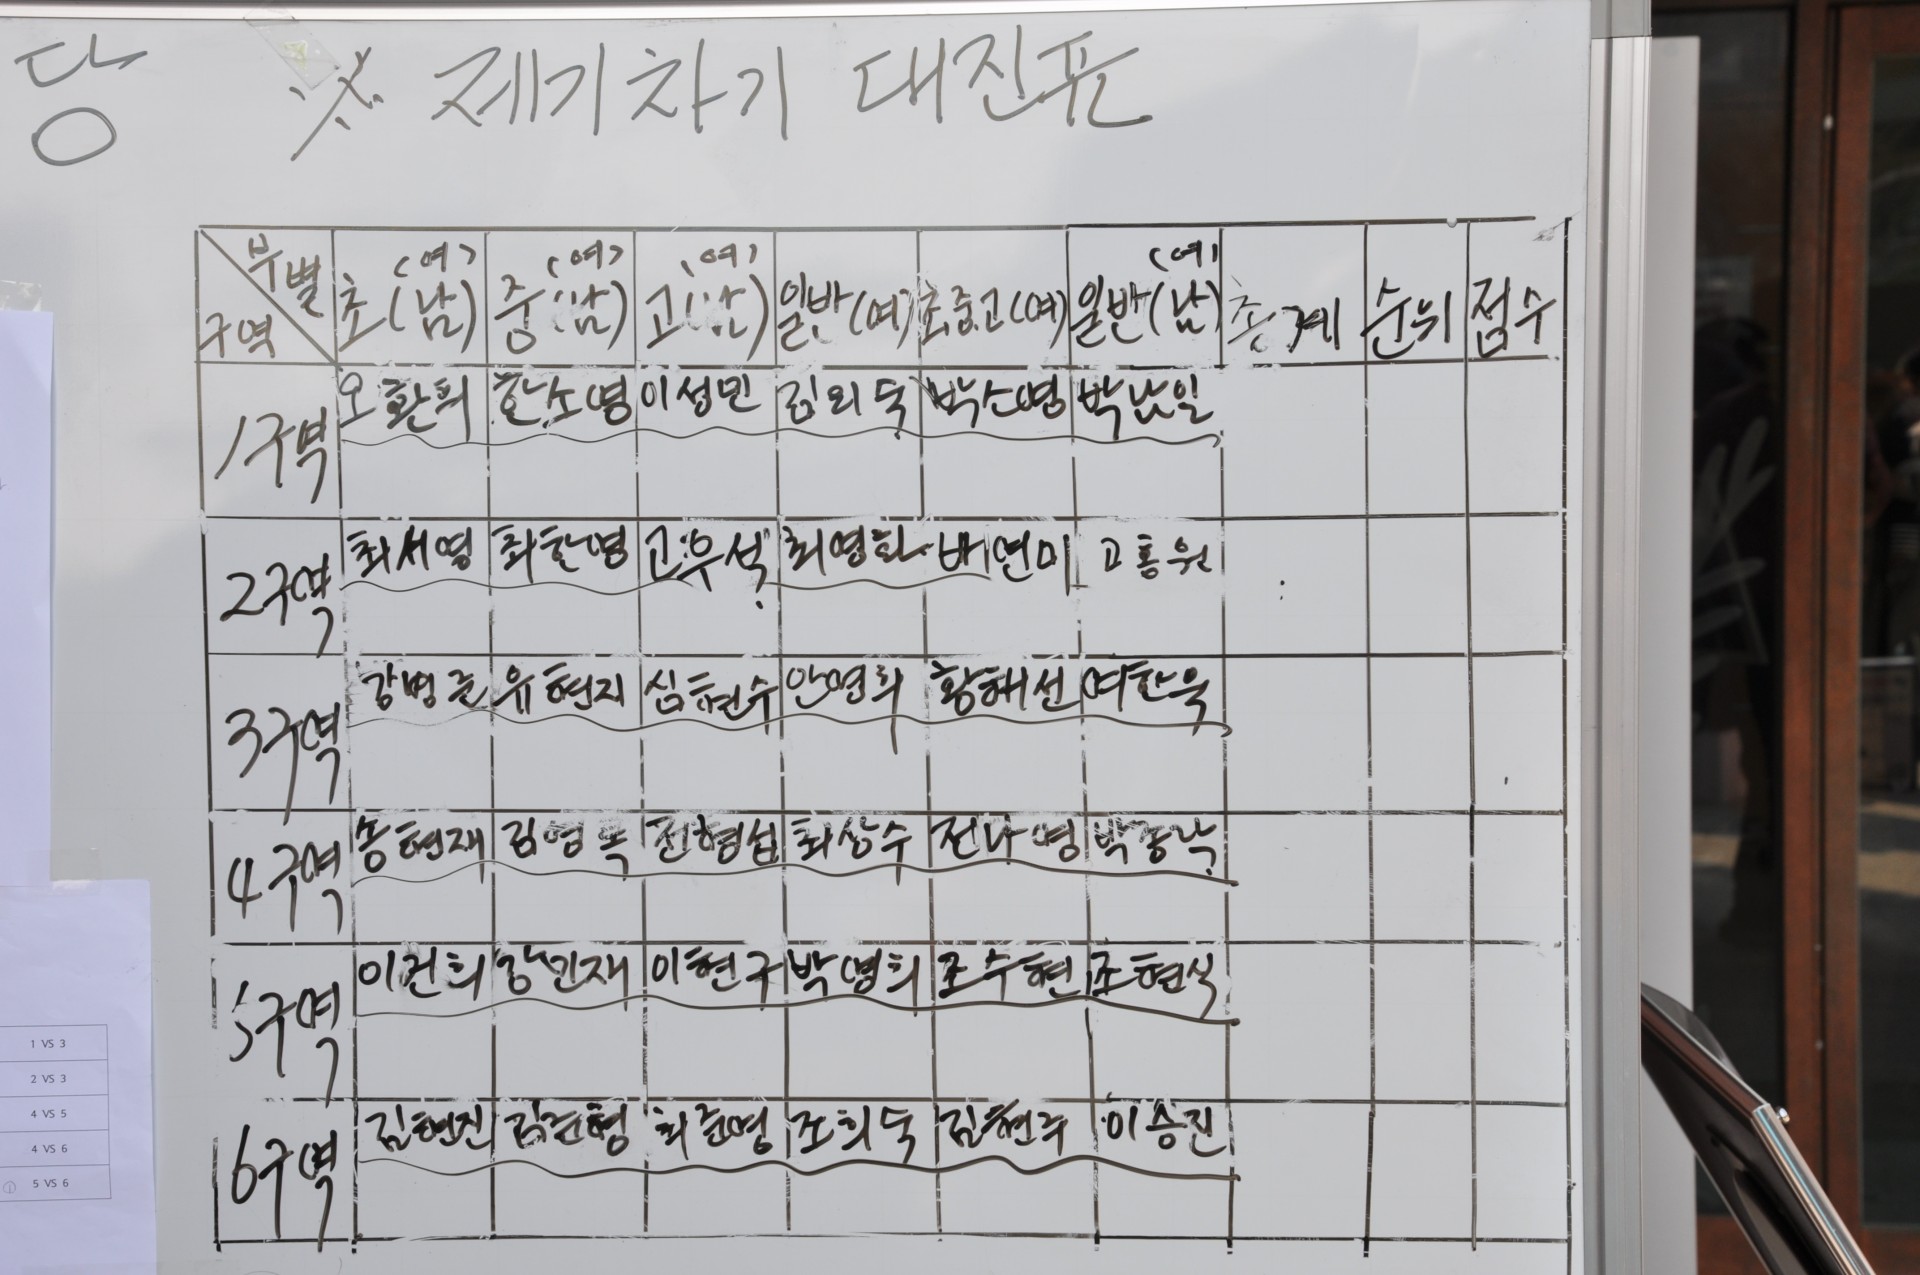 당 ※ 제기차기 대진표
부별 구역 초(남) (여) 중(남) (여) 고(남) (여) 일반(여) 초중고(여) 일반(남) (여) 총계 순위 점수
1구역 오환희 한소명 이성민 김외숙 박소명 박남일
2구역 최서영 최한영 고우석 최영화 배연미 고흥원
3구역 강병준 유현지 심현수 안영희 황혜선 여한욱
4구역 송현재 김영록 전형섭 최상수 전나영 박종낙
5구역 이건희 강민재 이현구 박명희 조수현 조현식
6구역 김현진 김준형 최준영 조희숙 김현주 이승진
1 VS 3
2 VS 3
4 VS 5
4 VS 6
① 5 VS 6